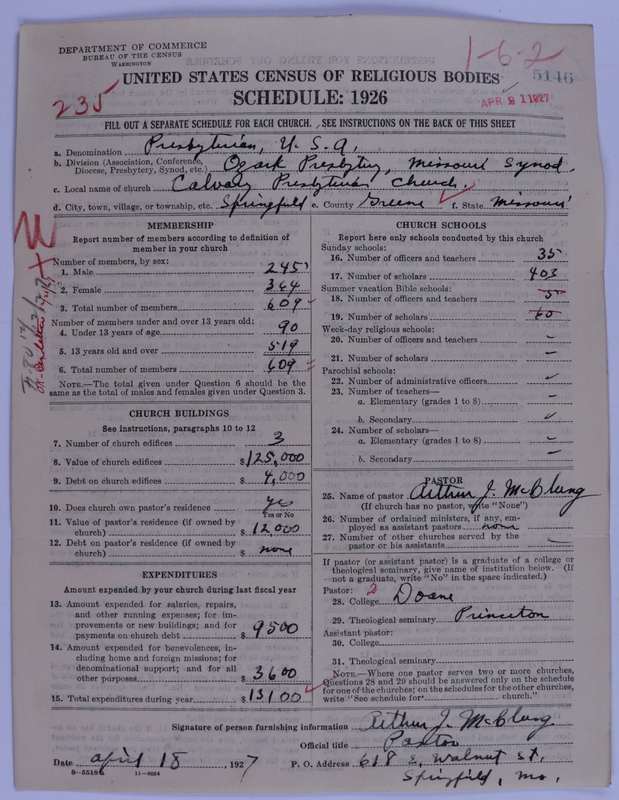 DEPARTMENT OF COMMERCE
BUREAU OF THE CENSUS
WASHINGTON
1-6-2
5146
UNITED STATES CENSUS OF RELIGIOUS BODIES
235
SCHEDULE: 1926
APR 21 1927
FILL OUT A SEPARATE SCHEDULE FOR EACH CHURCH. SEE INSTRUCTIONS ON THE BACK OF THIS SHEET
a. Denomination Presbyterian, U.S.A.
b. Division (Association, Conference, Diocese, Presbytery, Synod, etc.) Ozark Presbytery, Missouri Synod.
c. Local name of church Calvary Presbyterian Church.
d. City, town, village, or township, etc. Springfield e. County Greene f. State Missouri
MEMBERSHIP
Report number of members according to definition of
member in your church
Number of members, by sex:
1. Male 245
2. Female 364
3. Total number of members 609
Number of members under and over 13 years old:
4. Under 13 years of age 90
5. 13 years old and over 519
6. Total number of members 609
NOTE.—The total given under Question 6 should be the
same as the total of males and females given under Question 3.
CHURCH BUILDINGS
See instructions, paragraphs 10 to 12
7. Number of church edifices 3
8. Value of church edifices $125,000
9. Debt on church edifices $ 4,000
10. Does church own pastor's residence yes
Yes or No
11. Value of pastor's residence (if owned by
church) $ 12,000
12. Debt on pastor's residence (if owned by
church) $ none
EXPENDITURES
Amount expended by your church during last fiscal year
13. Amount expended for salaries, repairs,
and other running expenses; for im-
provements or new buildings; and for
payments on church debt $ 9500
14. Amount expended for benevolences, in-
cluding home and foreign missions; for
denominational support; and for all
other purposes $ 3600
15. Total expenditures during year $ 13100
CHURCH SCHOOLS
Report here only schools conducted by this church
Sunday schools:
16. Number of officers and teachers 35
17. Number of scholars 403
Summer vacation Bible schools:
18. Number of officers and teachers 5
19. Number of scholars 60
Week-day religious schools:
20. Number of officers and teachers –
21. Number of scholars –
Parochial schools:
22. Number of administrative officers
23. Number of teachers—
a. Elementary (grades 1 to 8) –
b. Secondary
24. Number of scholars—
a. Elementary (grades 1 to 8) –
b. Secondary –
PASTOR
25. Name of pastor Arthur J. McClung
(If church has no pastor, write "None")
26. Number of ordained ministers, if any, em-
ployed as assistant pastors none
27. Number of other churches served by the
pastor or his assistants
If pastor (or assistant pastor) is a graduate of a college or
theological seminary, give name of institution below. (If
not a graduate, write "No" in the space indicated.)
Pastor: 2
28. College Doane
29. Theological seminary Princeton
Assistant pastor:
30. College
31. Theological seminary
NOTE.—Where one pastor serves two or more churches,
Questions 28 and 29 should be answered only on the schedule
for one of the churches; on the schedules for the other churches,
write "See schedule for church."
Signature of person furnishing information Arthur J. McClung
Official title Pastor
Date April 18, 1927 P. O. Address 618 E. Walnut St.
8-5518 11-9064 Springfield, Mo.